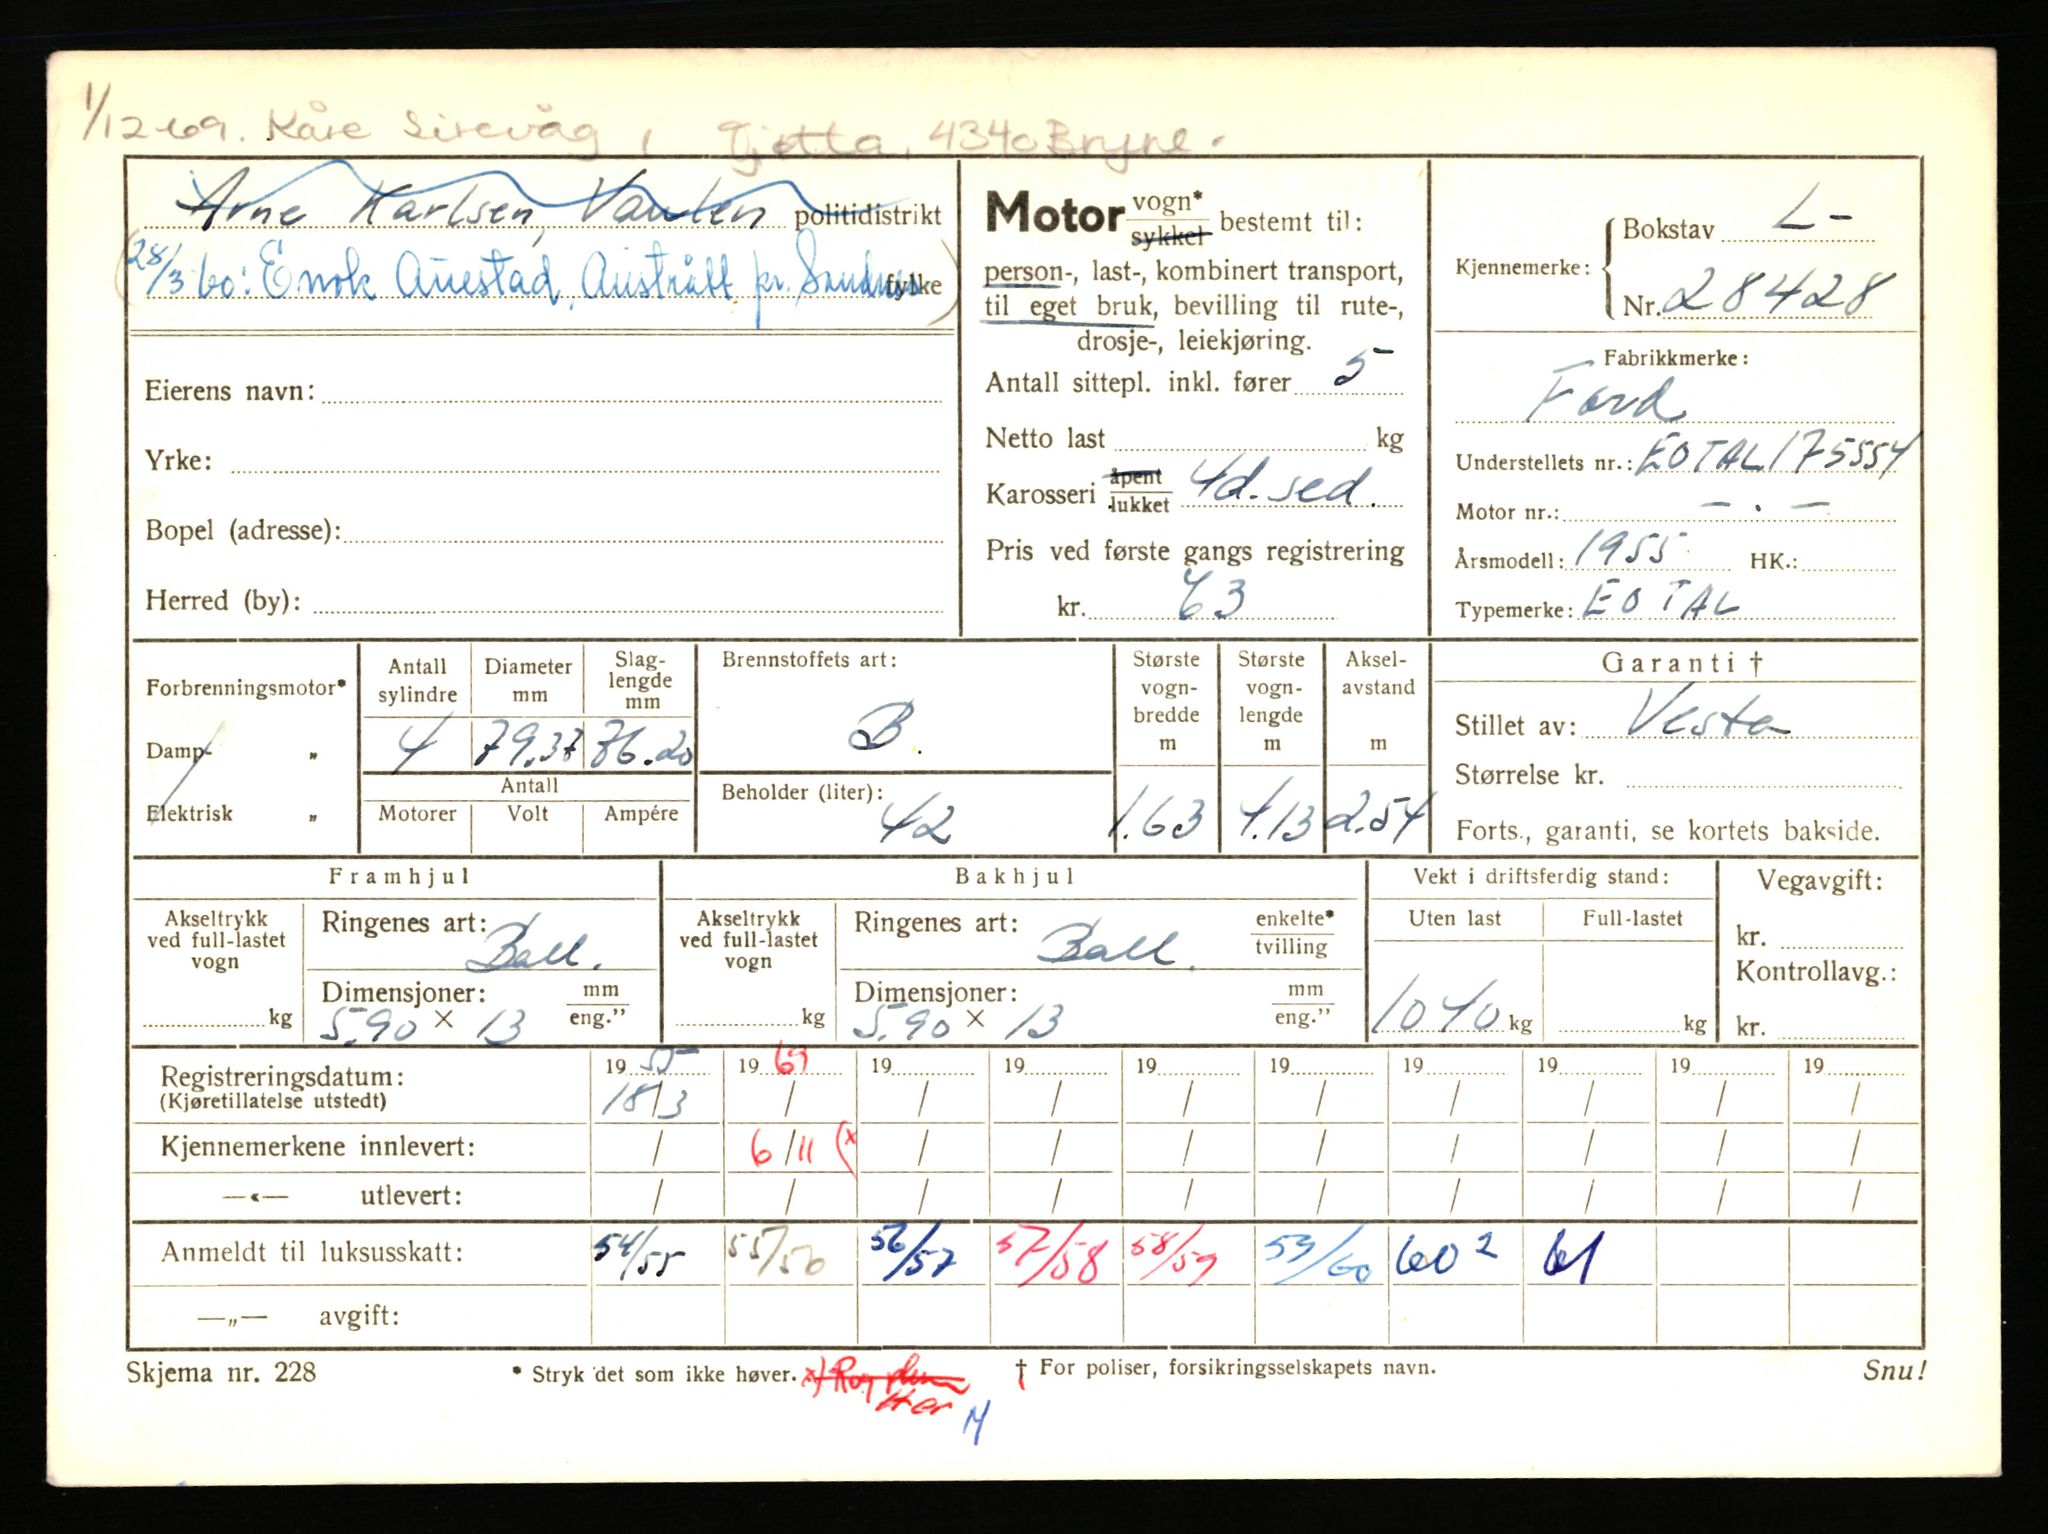 1/12-69. Kåre Sirevåg, Tjøtta, 4340 Bryne.
Arne Karlsen, Vaulen politidistrikt
(28/3 60: Enok Auestad, Austrått pr. Sandnes fylke)
Eierens navn:
Yrke:
Bopel (adresse):
Herred (by):
Motor vogn* sykkel bestemt til:
person-, last-, kombinert transport,
til eget bruk, bevilling til rute-,
drosje-, leiekjøring.
Antall sittepl. inkl. fører 5
Netto last kg
Karosseri åpent lukket 4d. sed.
Pris ved første gangs registrering
kr. 63
Kjennemerke: Bokstav L-
Nr. 28428
Fabrikkmerke:
Ford
Understellets nr.: EOTAL 175554
Motor nr.: - . -
Årsmodell: 1955 HK.:
Typemerke: EOTAL
Forbrenningsmotor*
Damp- „
Elektrisk „
Antall sylindre 4
Diameter mm 79.37
Slag-lengde mm 76.20
Antall
Motorer Volt Ampére
Brennstoffets art:
B.
Beholder (liter):
42
Største vogn-bredde m 1.63
Største vogn-lengde m 4.13
Aksel-avstand m 2.54
Garanti †
Stillet av: Vesta
Størrelse kr.
Forts., garanti, se kortets bakside.
Framhjul
Akseltrykk ved full-lastet vogn kg
Ringenes art: Ball.
Dimensjoner: mm eng."
5.90 x 13
Bakhjul
Akseltrykk ved full-lastet vogn kg
Ringenes art: Ball. enkelte* tvilling
Dimensjoner: mm eng."
5.90 x 13
Vekt i driftsferdig stand:
Uten last Full-lastet
1040 kg kg
Vegavgift:
kr.
Kontrollavg.:
kr.
Registreringsdatum: 19 55 19 69 19 19 19 19 19 19 19 19
(Kjøretillatelse utstedt) 18/3 / / / / / / / / /
Kjennemerkene innlevert: / 6/11 (x / / / / / / / /
—«— utlevert: / / / / / / / / / /
Anmeldt til luksusskatt: 54/55 55/56 56/57 57/58 58/59 59/60 60 2 61
—„— avgift:
Skjema nr. 228 * Stryk det som ikke høver. x) † For poliser, forsikringsselskapets navn. Snu!